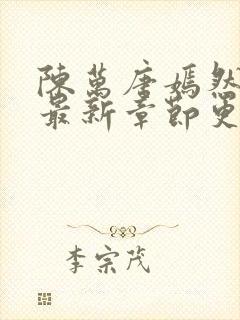 陳萬唐嫣然
最新章節更
李宗茂